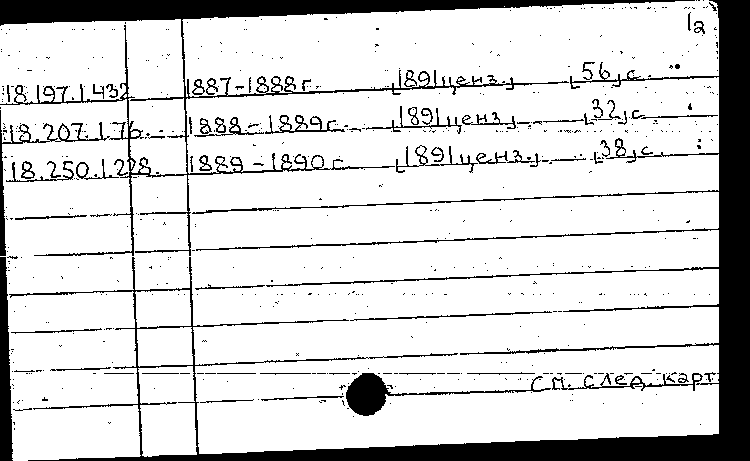 12
18.197.1.432 1887-1888г. [1891ценз.] [56]с.
18.207.1.76. 1888-1889г. [1891ценз.] [32]с.
18.250.1.228. 1889-1890г. [1891ценз.] [38]с.
См. след. карт.